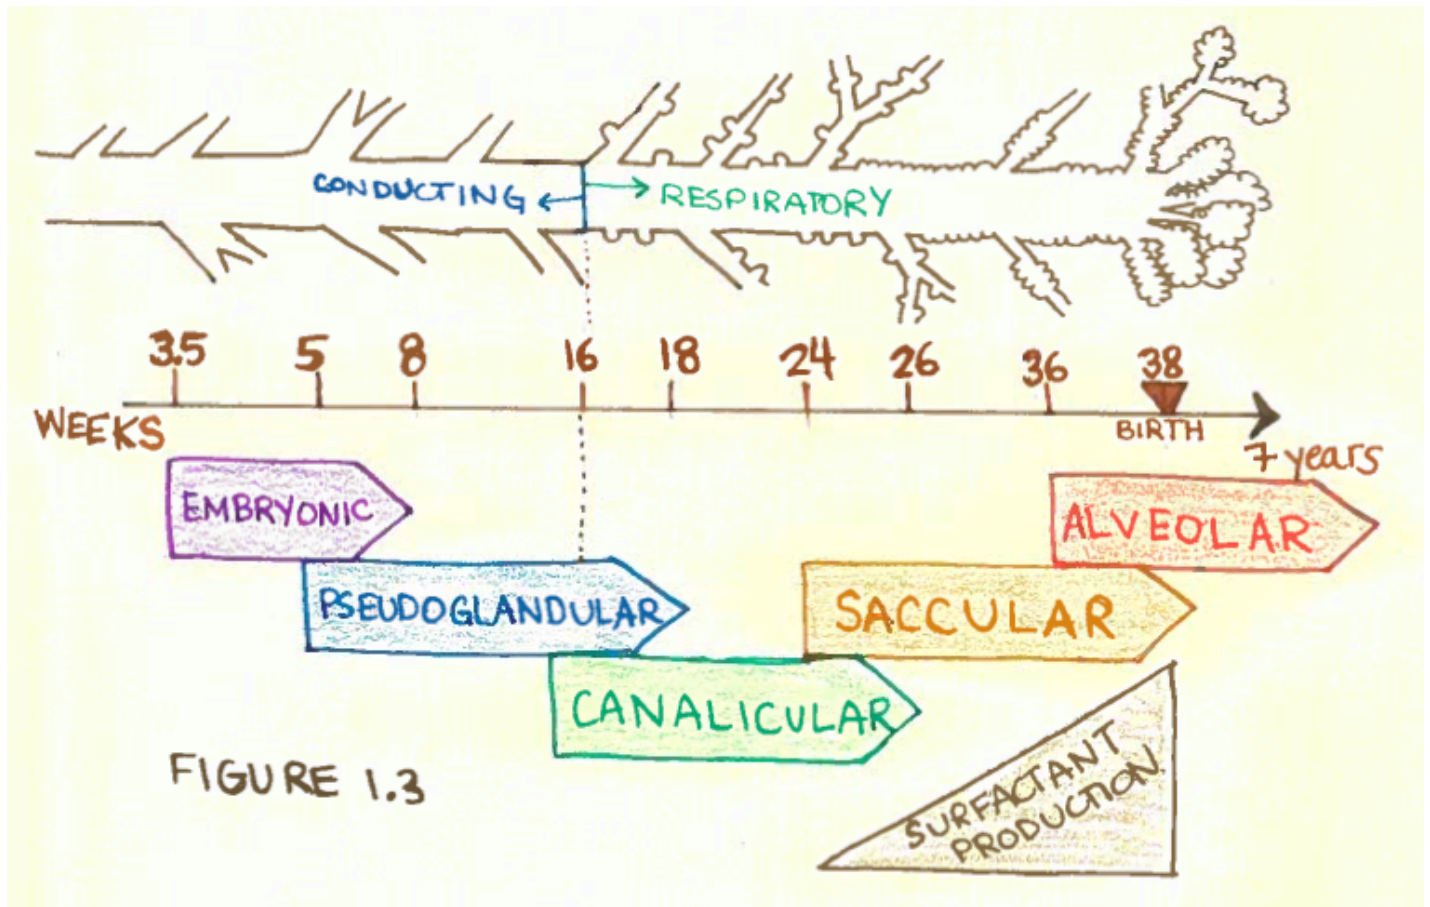 CONDUCTING
RESPIRATORY
3.5 5 8 16 18 24 26 36 38
WEEKS
BIRTH
7 years
EMBRYONIC
ALVEOLAR
PSEUDOGLANDULAR
SACCULAR
CANALICULAR
SURFACTANT
PRODUCTION
FIGURE 1.3